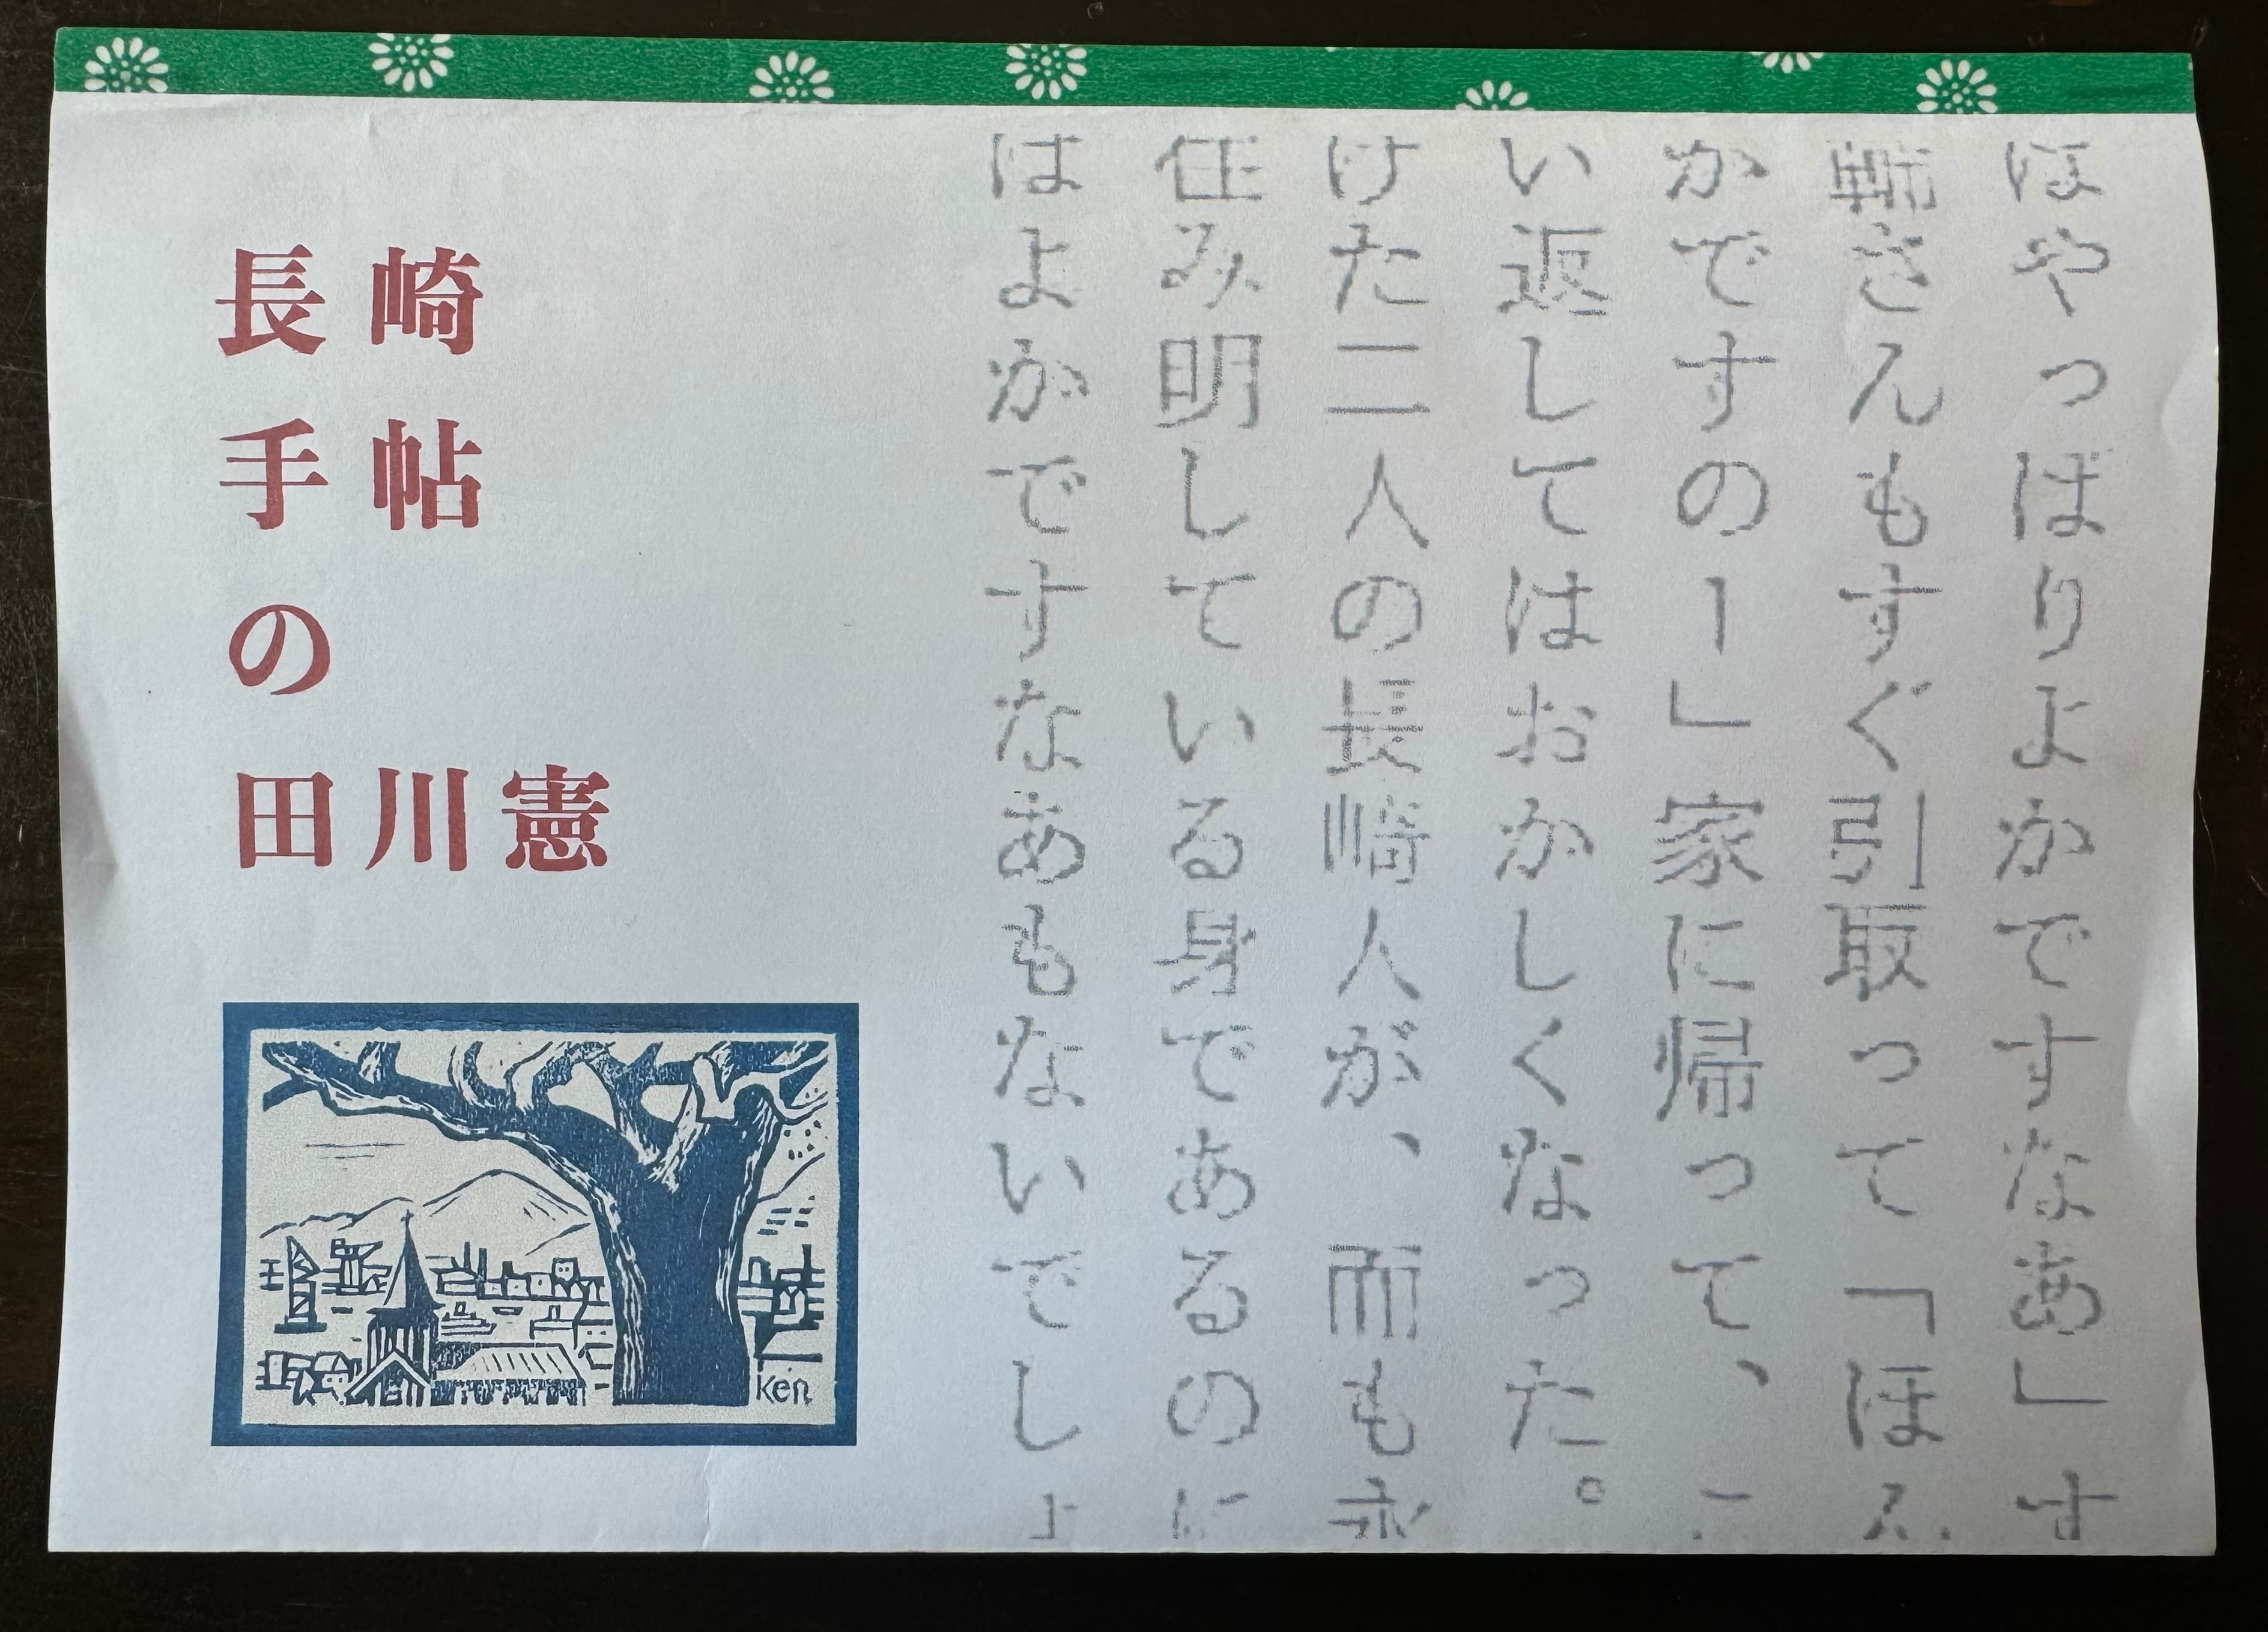 ほやっぱりよかですなあ」す
輔さんもすぐ引取って「ほん
かですのー」家に帰って、こ
い返してはおかしくなった。
けた二人の長崎人が、而も永
住み明している身であるのに
はよかですなあもないでしょ
長崎
手帖
の
田川憲
Ken